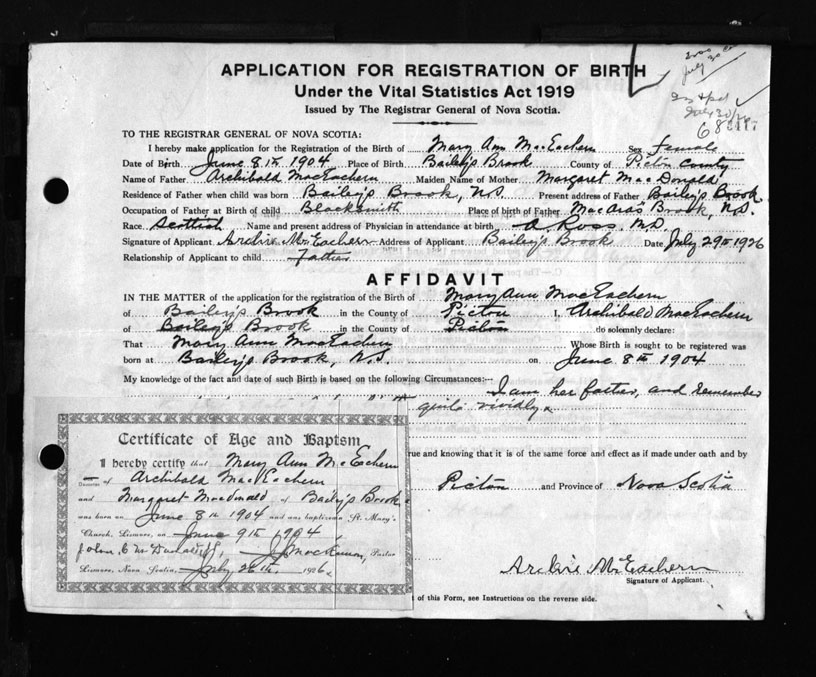 2700
July 30th
July 30/26
APPLICATION FOR REGISTRATION OF BIRTH
Under the Vital Statistics Act 1919
Issued by The Registrar General of Nova Scotia.
TO THE REGISTRAR GENERAL OF NOVA SCOTIA:
I hereby make application for the Registration of the Birth of Mary Ann MacEachern Sex female
Date of Birth June 8th 1904 Place of Birth Bailey's Brook County of Pictou County
Name of Father Archibald MacEachern Maiden Name of Mother Margaret MacDonald
Residence of Father when child was born Bailey's Brook, N.S. Present address of Father Bailey's Brook
Occupation of Father at Birth of child Blacksmith Place of birth of Father MacAras Brook, N.S.
Race Scottish Name and present address of Physician in attendance at birth A. Ross. M.D.
Signature of Applicant Archie McEachern Address of Applicant Bailey's Brook Date July 29th 1926
Relationship of Applicant to child Father
AFFIDAVIT
IN THE MATTER of the application for the registration of the Birth of Mary Ann MacEachern
of Bailey's Brook in the County of Pictou I, Archibald MacEachern
of Bailey's Brook in the County of Pictou do solemnly declare:
That Mary Ann MacEachern Whose Birth is sought to be registered was
born at Bailey's Brook, N.S. on June 8th 1904
My knowledge of the fact and date of such Birth is based on the following Circumstances:—
I am her father, and remember
quite vividly
rue and knowing that it is of the same force and effect as if made under oath and by
Pictou and Province of Nova Scotia
Archie McEachern
Signature of Applicant.
of this Form, see Instructions on the reverse side.
Certificate of Age and Baptism
I hereby certify that Mary Ann McEachern
Daughter of Archibald MacEachern
and Margaret MacDonald of Bailey's Brook
was born on June 8th 1904 and was baptised in St. Mary's
Church, Lismore, on June 9th 1904,
J. MacKinnon, Pastor
Lismore, Nova Scotia, July 26th, 1926